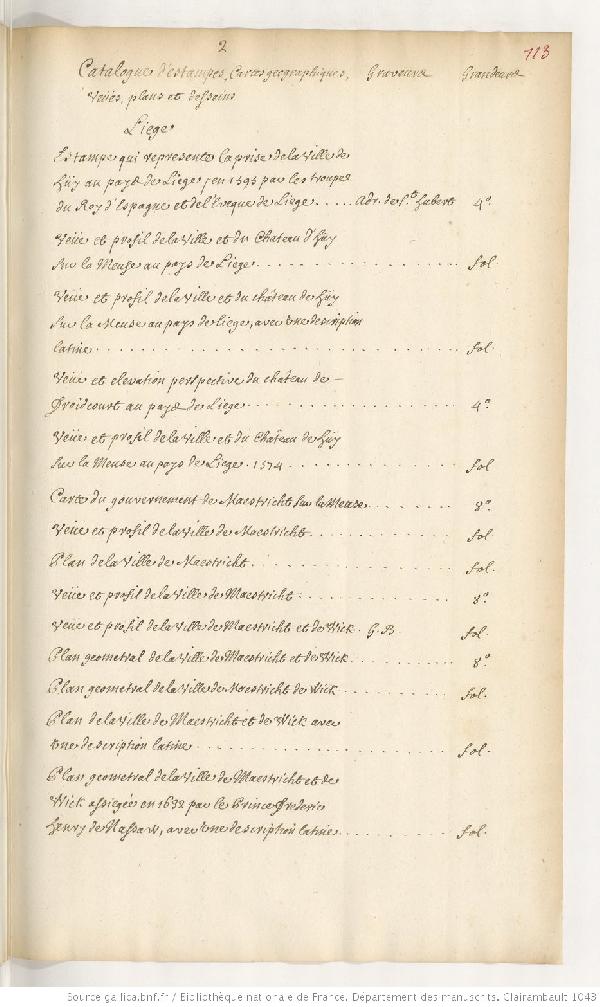 2
113
Catalogue d'estampes, Cartes geographiques, Graveurs Grandeurs
Veües, plans et desseins
Liege
Estampe qui represente la prise de la Ville de
Hüy au pays de Liege, en 1595 par les troupes
du Roy d'Espagne et de l'Eveque de Liege..... Adr. de St. Hubert 4°.
Veüe et profil de la Ville et du Chateau d'Huy
sur la Meuse au pays de Liege. fol.
Veüe et profil de la Ville et du château de Huy
sur la Meuse au pays de Liege, avec une description
latine. fol.
Veüe et elevation perspective du château de –
Froidcourt au pays de Liege. 4°.
Veüe et profil de la Ville et du Château de Huy
sur la Meuse au pays de Liege. 1574 fol
Carte du gouvernement de Maestricht sur la Meuse. 8°.
Veüe et profil de la Ville de Maestricht. fol.
Plan de la Ville de Maestricht. fol.
Veüe et profil de la Ville de Maestricht. 8°.
Veüe et profil de la Ville de Maestricht et de Wick. G. B. fol.
Plan geometral de la Ville de Maestricht et de Wick. 8°
Plan geometral de la Ville de Maestricht de Wick. fol.
Plan de la Ville de Maestricht et de Wick avec
une description latine. fol.
Plan geometral de la Ville de Maestricht et de
Wick assiegée en 1632 par le Prince Frederic
Henry de Nassaw, avec une description latine. fol.
Source gallica.bnf.fr / Bibliothèque nationale de France. Département des manuscrits. Clairambault 1043